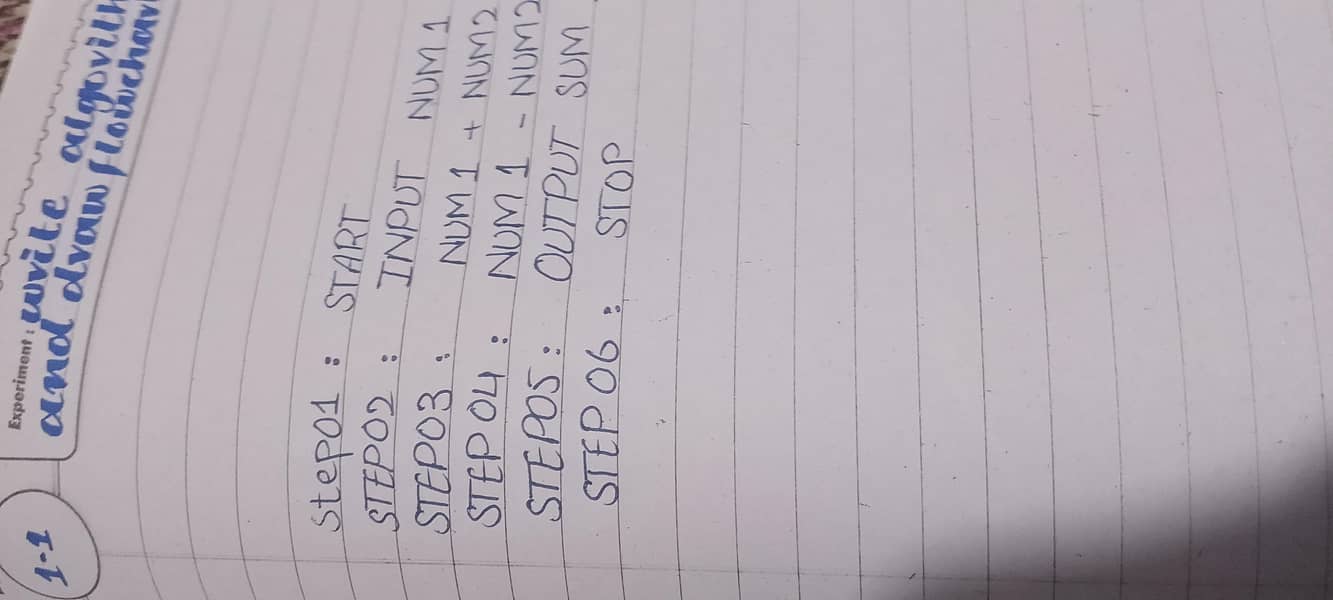 1-1
Experiment : write algorith
and draw flowchar
Step01 : START
STEP02 : INPUT NUM1
STEP03 : NUM1 + NUM2
STEP04 : NUM1 - NUM2
STEP05 : OUTPUT SUM
STEP06 : STOP